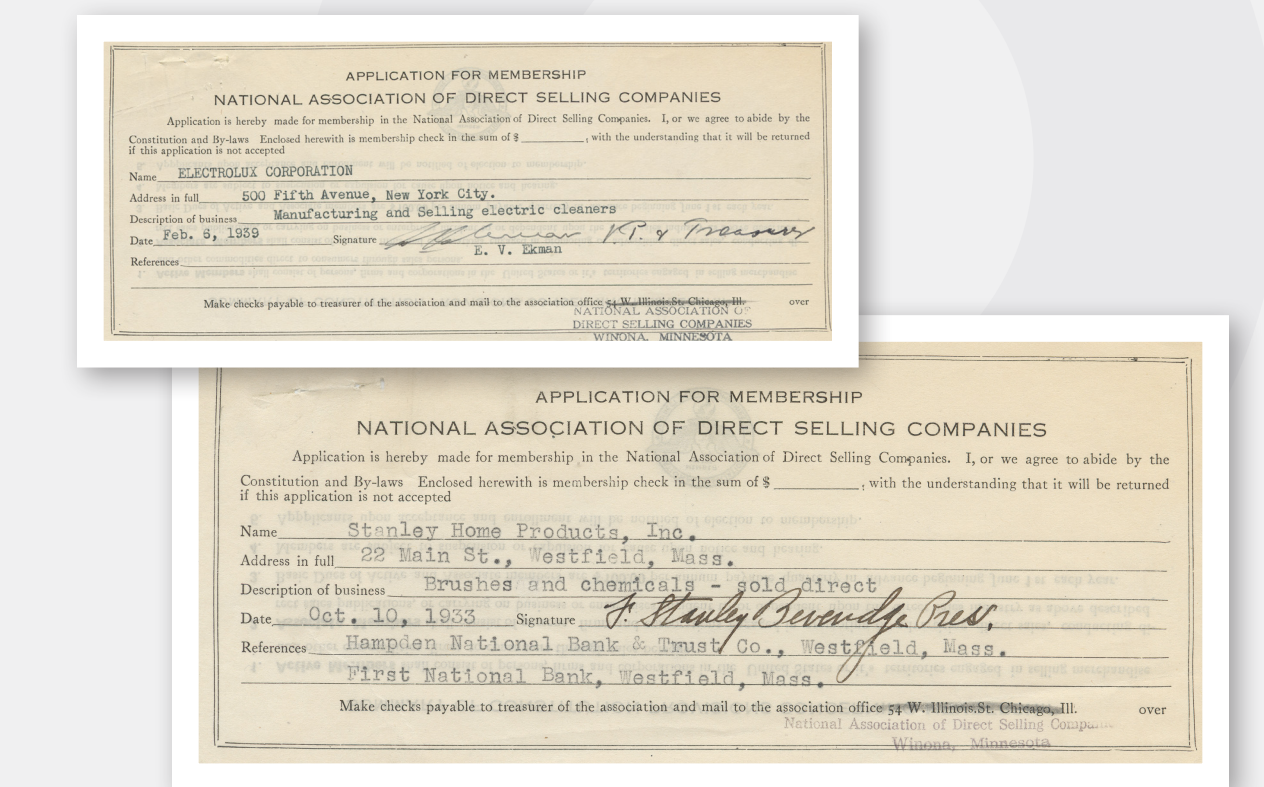 APPLICATION FOR MEMBERSHIP
NATIONAL ASSOCIATION OF DIRECT SELLING COMPANIES
Application is hereby made for membership in the National Association of Direct Selling Companies. I, or we agree to abide by the
Constitution and By-laws Enclosed herewith is membership check in the sum of $ ________, with the understanding that it will be returned
if this application is not accepted
Name ELECTROLUX CORPORATION
Address in full 500 Fifth Avenue, New York City.
Description of business Manufacturing and Selling electric cleaners
Date Feb. 6, 1939 Signature V.P. & Treasurer
E. V. Ekman
References
Make checks payable to treasurer of the association and mail to the association office 54 W. Illinois.St. Chicago, Ill. over
NATIONAL ASSOCIATION OF
DIRECT SELLING COMPANIES
WINONA, MINNESOTA
APPLICATION FOR MEMBERSHIP
NATIONAL ASSOCIATION OF DIRECT SELLING COMPANIES
Application is hereby made for membership in the National Association of Direct Selling Companies. I, or we agree to abide by the
Constitution and By-laws Enclosed herewith is membership check in the sum of $ ________, with the understanding that it will be returned
if this application is not accepted
Name Stanley Home Products, Inc.
Address in full 22 Main St., Westfield, Mass.
Description of business Brushes and chemicals - sold direct
Date Oct. 10, 1933 Signature F. Stanley Beveridge Pres.
References Hampden National Bank & Trust Co., Westfield, Mass.
First National Bank, Westfield, Mass.
Make checks payable to treasurer of the association and mail to the association office 54 W. Illinois.St. Chicago, Ill. over
National Association of Direct Selling
Winona, Minnesota